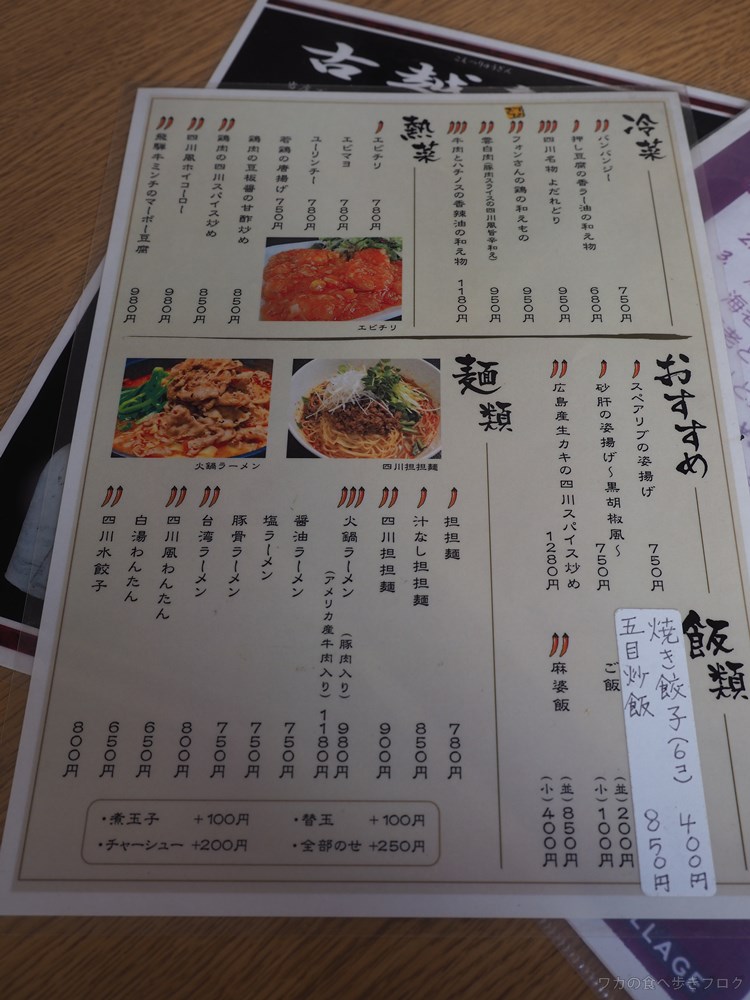 古越
こえつりゅうさん
冷菜
バンバンジー 750円
押し豆腐の香ラー油の和え物 680円
四川名物 よだれどり 950円
フォンさんの鶏の和えもの 950円
雲白肉(豚肉スライスの四川風旨辛和え) 950円
牛肉とハチノスの香辣油の和え物 1180円
熱菜
エビチリ 780円
エビマヨ 780円
ユーリンチー 780円
若鶏の唐揚げ 750円
鶏肉の豆板醤の甘酢炒め 850円
鶏肉の四川スパイス炒め 850円
四川風ホイコーロー 980円
飛騨牛ミンチのマーボー豆腐 980円
エビチリ
おすすめ
スペアリブの姿揚げ 750円
砂肝の姿揚げ〜黒胡椒風〜 750円
広島産生カキの四川スパイス炒め 1280円
麺類
四川担担麺
火鍋ラーメン
担担麺 780円
汁なし担担麺 850円
四川担担麺 900円
火鍋ラーメン (豚肉入り) 980円
(アメリカ産牛肉入り) 1180円
醤油ラーメン 750円
塩ラーメン 750円
豚骨ラーメン 750円
台湾ラーメン 750円
四川風わんたん 800円
白湯わんたん 650円
四川水餃子 800円
飯類
焼き餃子(6コ) 400円
五目炒飯 850円
ご飯 (並)200円
(小)100円
麻婆飯 (並)850円
(小)400円
・煮玉子 +100円
・替玉 +100円
・チャーシュー +200円
・全部のせ +250円
LLAGE
ワカの食べ歩きブログ